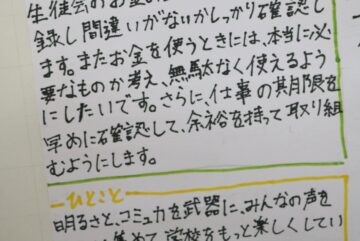 生徒会のお金の
録し間違いがないかしっかり確認し
ます。またお金を使うときには、本当に必
要なものか考え、無駄なく使えるよう
にしたいです。さらに、仕事の期限を
早めに確認して、余裕を持って取り組
むようにします。
ひとこと
明るさと、コミュ力を武器に、みんなの声を
集めて学校をもっと楽しくしてい